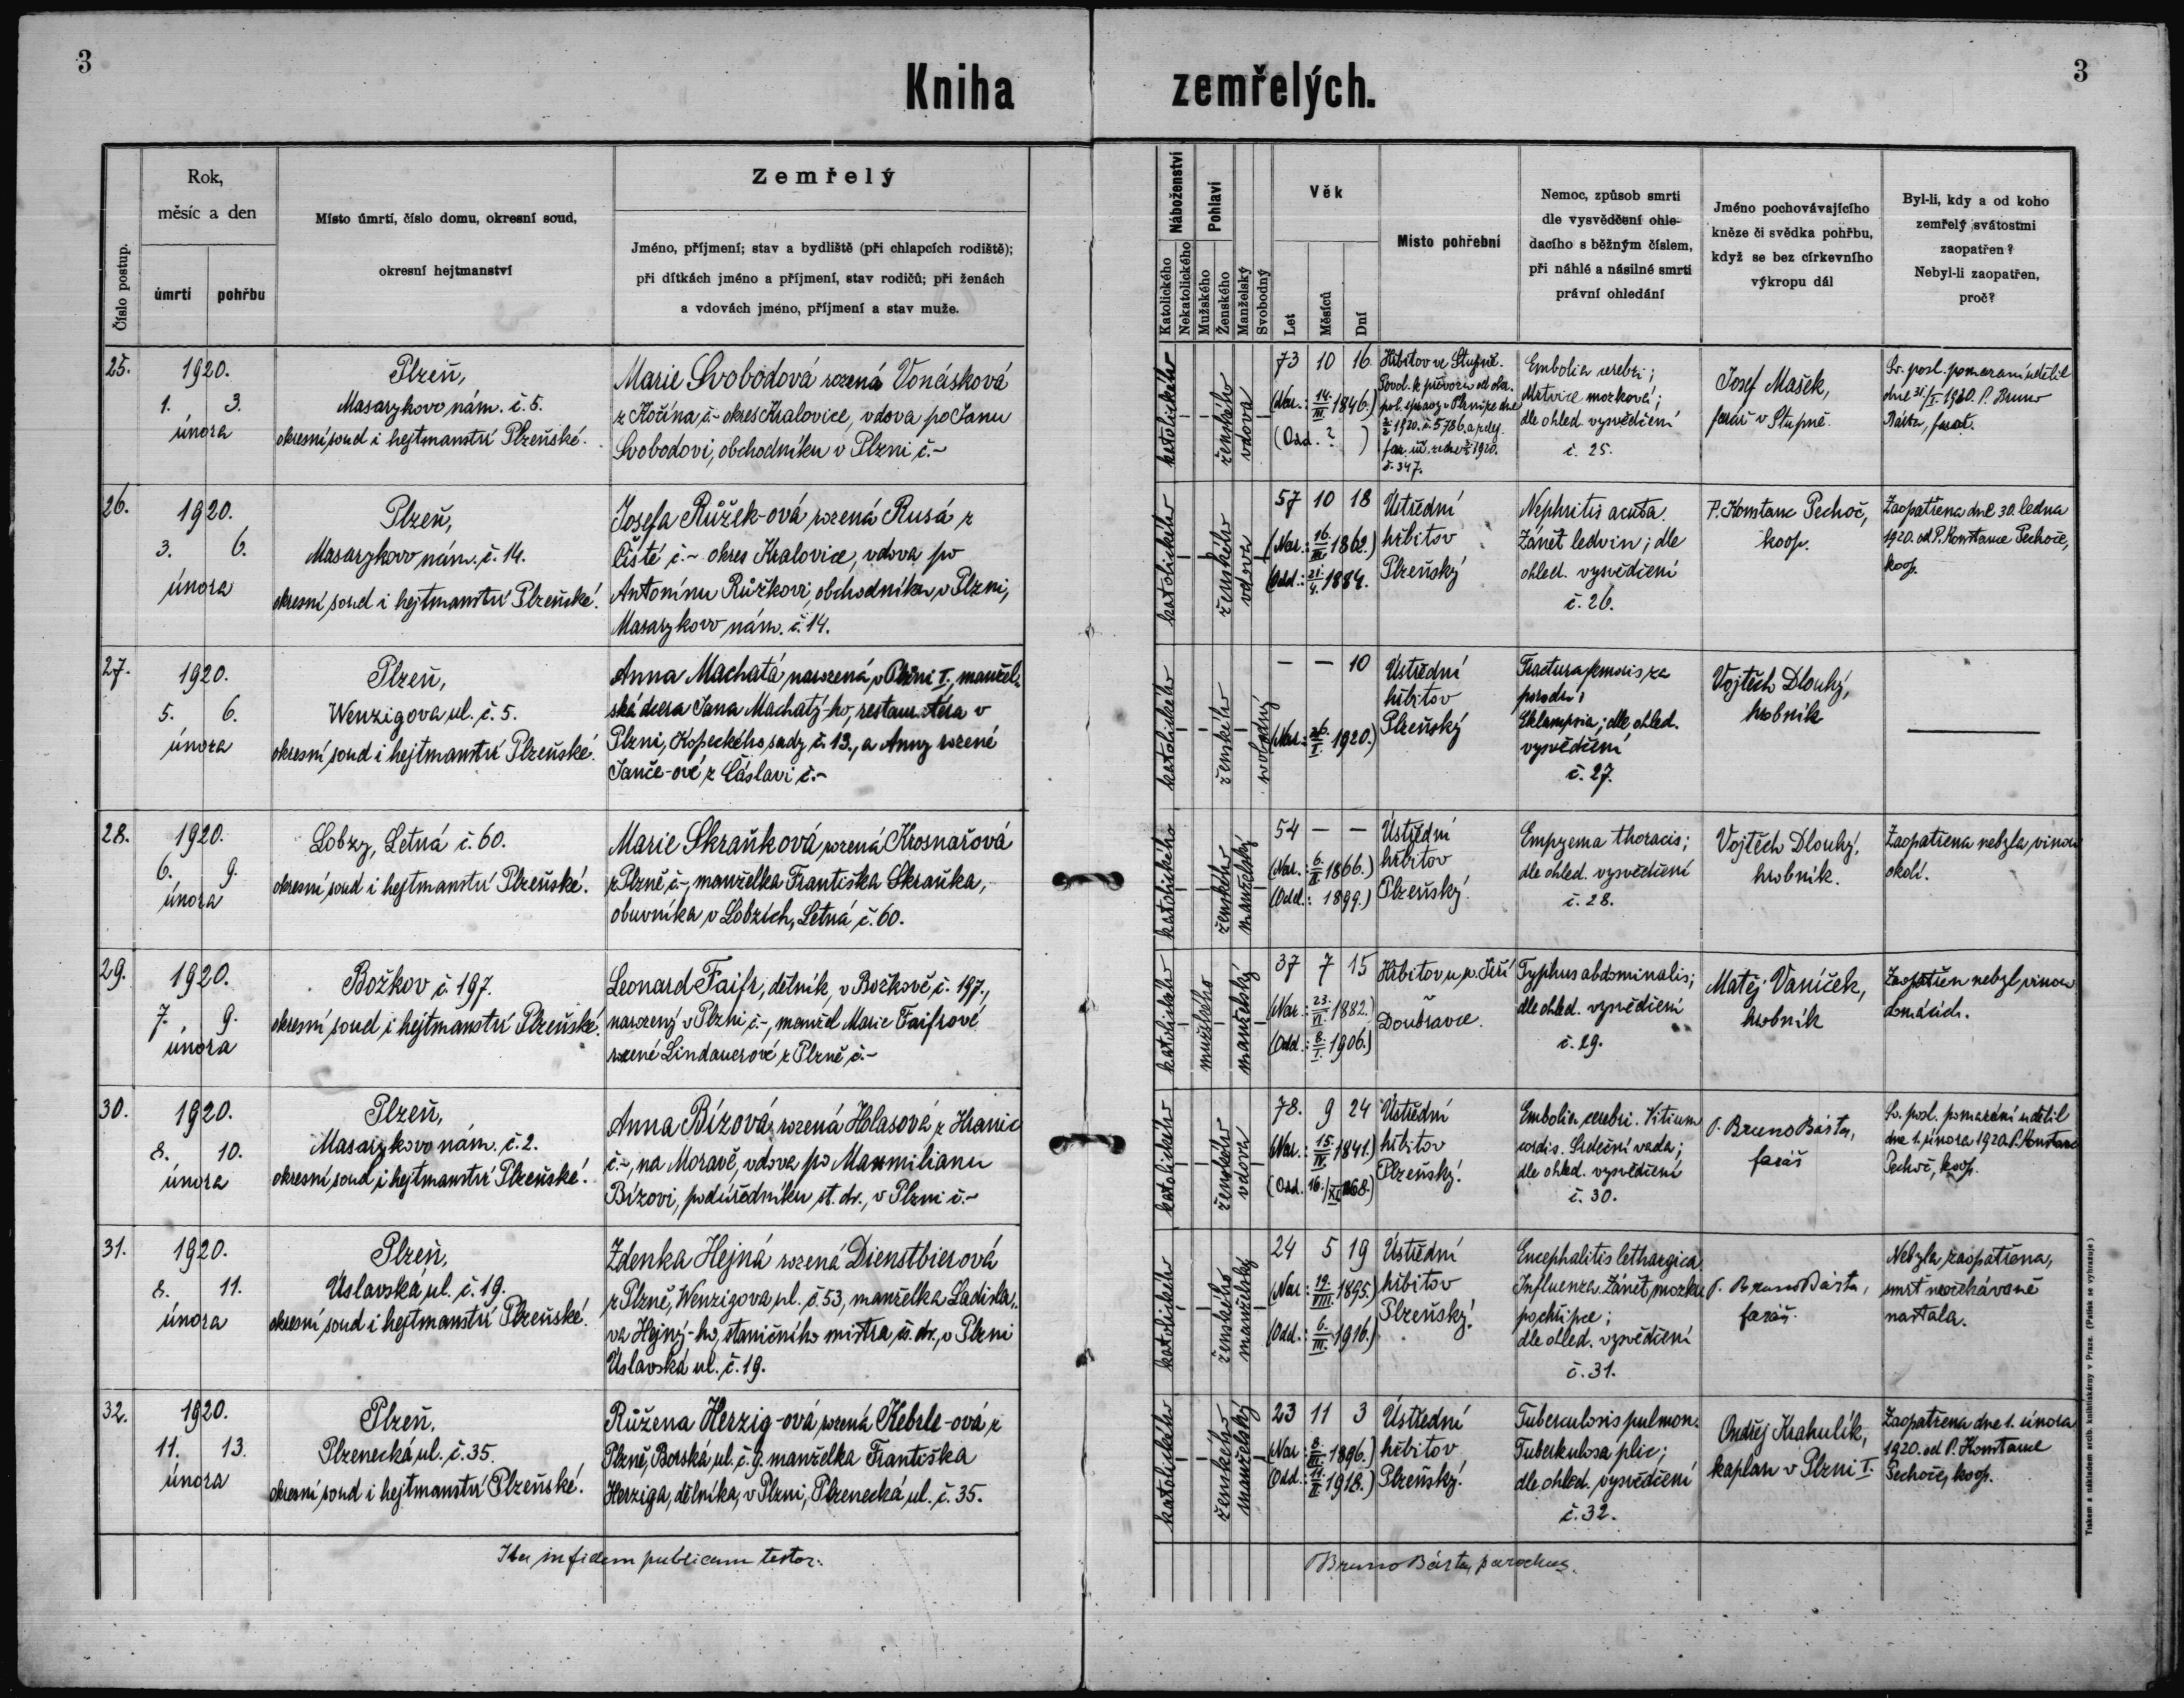 3
Kniha zemřelých.
3
Číslo postup.
Rok,
měsíc a den
úmrtí
pohřbu
Místo úmrtí, číslo domu, okresní soud,
okresní hejtmanství
Zemřelý
Jméno, příjmení; stav a bydliště (při chlapcích rodiště);
při dítkách jméno a příjmení, stav rodičů; při ženách
a vdovách jméno, příjmení a stav muže.
Náboženství
Katolického
Nekatolického
Pohlaví
Mužského
Ženského
Manželský
Svobodný
Věk
Let
Měsíců
Dní
Místo pohřební
Nemoc, způsob smrti
dle vysvědčení ohle-
dacího s běžným číslem,
při náhlé a násilné smrti
právní ohledání
Jméno pochovávajícího
kněze či svědka pohřbu,
když se bez církevního
výkropu dál
Byl-li, kdy a od koho
zemřelý svátostmi
zaopatřen?
Nebyl-li zaopatřen,
proč?
25.
1920.
1. 3.
února
Plzeň,
Masarykovo nám. č. 5.
okresní soud i hejtmanství Plzeňské.
Marie Svobodová rozená Vonásková
z Kočína, č.- okres Kralovice, vdova po Janu
Svobodovi, obchodníku v Plzni č.-
katolického
ženského
vdova
73 10 16
(Nar.: 14./III. 1846.)
(Odd. ? )
Hřbitov ve Stupně.
Povol. k převozu od okr.
pol. správy v Plzni ze dne
2/2 1920. č. 5786. a zdejš.
far. úř. ze dne 2/2 1920.
č. 347.
Embolia cerebri;
Mrtvice mozková;
dle ohled. vysvědčení
č. 25.
Josef Mašek,
farář v Stupně.
Sv. posl. pomazání udělil
dne 31./I. 1920. P. Bruno
Bárta, farář.
26.
1920.
3. 6.
února
Plzeň,
Masarykovo nám. č. 14.
okresní soud i hejtmanství Plzeňské.
Josefa Růžek-ová rozená Rusá z
Čisté č.- okres Kralovice, vdova po
Antonínu Růžkovi, obchodníku v Plzni,
Masarykovo nám. č. 14.
katolického
ženského
vdova
57 10 18
(Nar.: 16./III. 1862.)
(Odd.: 21./4. 1884.
Ústřední
hřbitov
Plzeňský
Nephritis acuta.
Zánět ledvin; dle
ohled. vysvědčení
č. 26.
P. Konstanc Pechoč,
koop.
Zaopatřena dne 30. ledna
1920. od P. Konstance Pechoče,
koop.
27.
1920.
5. 6.
února
Plzeň,
Wenzigova ul. č. 5.
okresní soud i hejtmanství Plzeňské.
Anna Machatá, narozená v Plzni I., manžel-
ská dcera Jana Machatý-ho, restauratéra v
Plzni, Kopeckého sady č. 13., a Anny rozené
Janče-ové z Čáslavi č.-
katolického
ženského
svobodný
— — 10
(Nar.: 26./I. 1920.)
Ústřední
hřbitov
Plzeňský
Fractura femoris za
porodu;
Eklampsia; dle ohled.
vysvědčení
č. 27.
Vojtěch Dlouhý,
hrobník
—
28.
1920.
6. 9.
února
Lobzy, Letná č. 60.
okresní soud i hejtmanství Plzeňské.
Marie Skraňková rozená Krosnařová
z Plzně č.-, manželka Františka Skraňka,
obuvníka v Lobzích, Letná č. 60.
katolického
ženského
manželský
54 — —
(Nar.: 6./II. 1866.)
(Odd.: 1899.)
Ústřední
hřbitov
Plzeňský.
Empyema thoracis;
dle ohled. vysvědčení
č. 28.
Vojtěch Dlouhý,
hrobník.
Zaopatřena nebyla, vinou
okolí.
29.
1920.
7. 9.
února
Božkov č. 197.
okresní soud i hejtmanství Plzeňské.
Leonard Faifr, dělník, v Božkově č. 197.,
narozený v Plzni č.-, manžel Marie Faifrové
rozené Lindauerové z Plzně č.-
katolického
mužského
manželský
37 7 15
(Nar.: 23./VI. 1882.)
(Odd.: 8./I. 1906.)
Hřbitov u sv. Jiří
v
Doubravce.
Typhus abdominalis;
dle ohled. vysvědčení
č. 29.
Matěj Vaníček,
hrobník
Zaopatřen nebyl vinou
domácích.
30.
1920.
8. 10.
února
Plzeň,
Masarykovo nám. č. 2.
okresní soud i hejtmanství Plzeňské.
Anna Bízová, rozená Holasová z Hranic
č.-, na Moravě, vdova po Maxmilianu
Bízovi, podúředníku st. dr., v Plzni č.-
katolického
ženského
vdova
78. 9 24
(Nar.: 15./IV. 1841.)
(Odd. 16./XI. 1868.)
Ústřední
hřbitov
Plzeňský.
Embolia cerebri. Vitium
cordis. Srdeční vada;
dle ohled. vysvědčení
č. 30.
P. Bruno Bárta,
farář
Sv. posl. pomazání udělil
dne 1. února 1920 P. Konstanc
Pechoč, koop.
31.
1920.
8. 11.
února
Plzeň,
Úslavská ul. č. 19.
okresní soud i hejtmanství Plzeňské.
Zdenka Hejná rozená Dienstbierová
z Plzně, Wenzigova ul. č. 53, manželka Ladisla-
va Hejný-ho, staničního mistra čs. dr., v Plzni
Úslavská ul. č. 19.
katolického
ženského
manželský
24 5 19
(Nar.: 19./VIII. 1895.)
(Odd.: 6./III. 1916.)
Ústřední
hřbitov
Plzeňský.
Encephalitis lethargica
Influenza. Zánět mozku
po chřipce;
dle ohled. vysvědčení
č. 31.
P. Bruno Bárta,
farář.
Nebyla zaopatřena,
smrt neočekávaně
nastala.
32.
1920.
11. 13.
února
Plzeň,
Plzenecká ul. č. 35.
okresní soud i hejtmanství Plzeňské.
Růžena Herzig-ová rozená Kebrle-ová z
Plzně, Borská ul. č. 9. manželka Františka
Herziga, dělníka, v Plzni, Plzenecká ul. č. 35.
katolického
ženského
manželský
23 11 3
(Nar.: 8./III. 1896.)
(Odd.: 1918.)
Ústřední
hřbitov
Plzeňský.
Tuberculosis pulmon.
Tuberkulosa plic;
dle ohled. vysvědčení
č. 32.
Ondřej Krahulík,
kaplan v Plzni I.
Zaopatřena dne 1. února
1920. od P. Konstance
Pechoče, koop.
Ita in fidem publicam testor:
Bruno Bárta, parochus.
Tiskem a nákladem arcib. knihtiskárny v Praze. (Patisk se vyhrazuje)